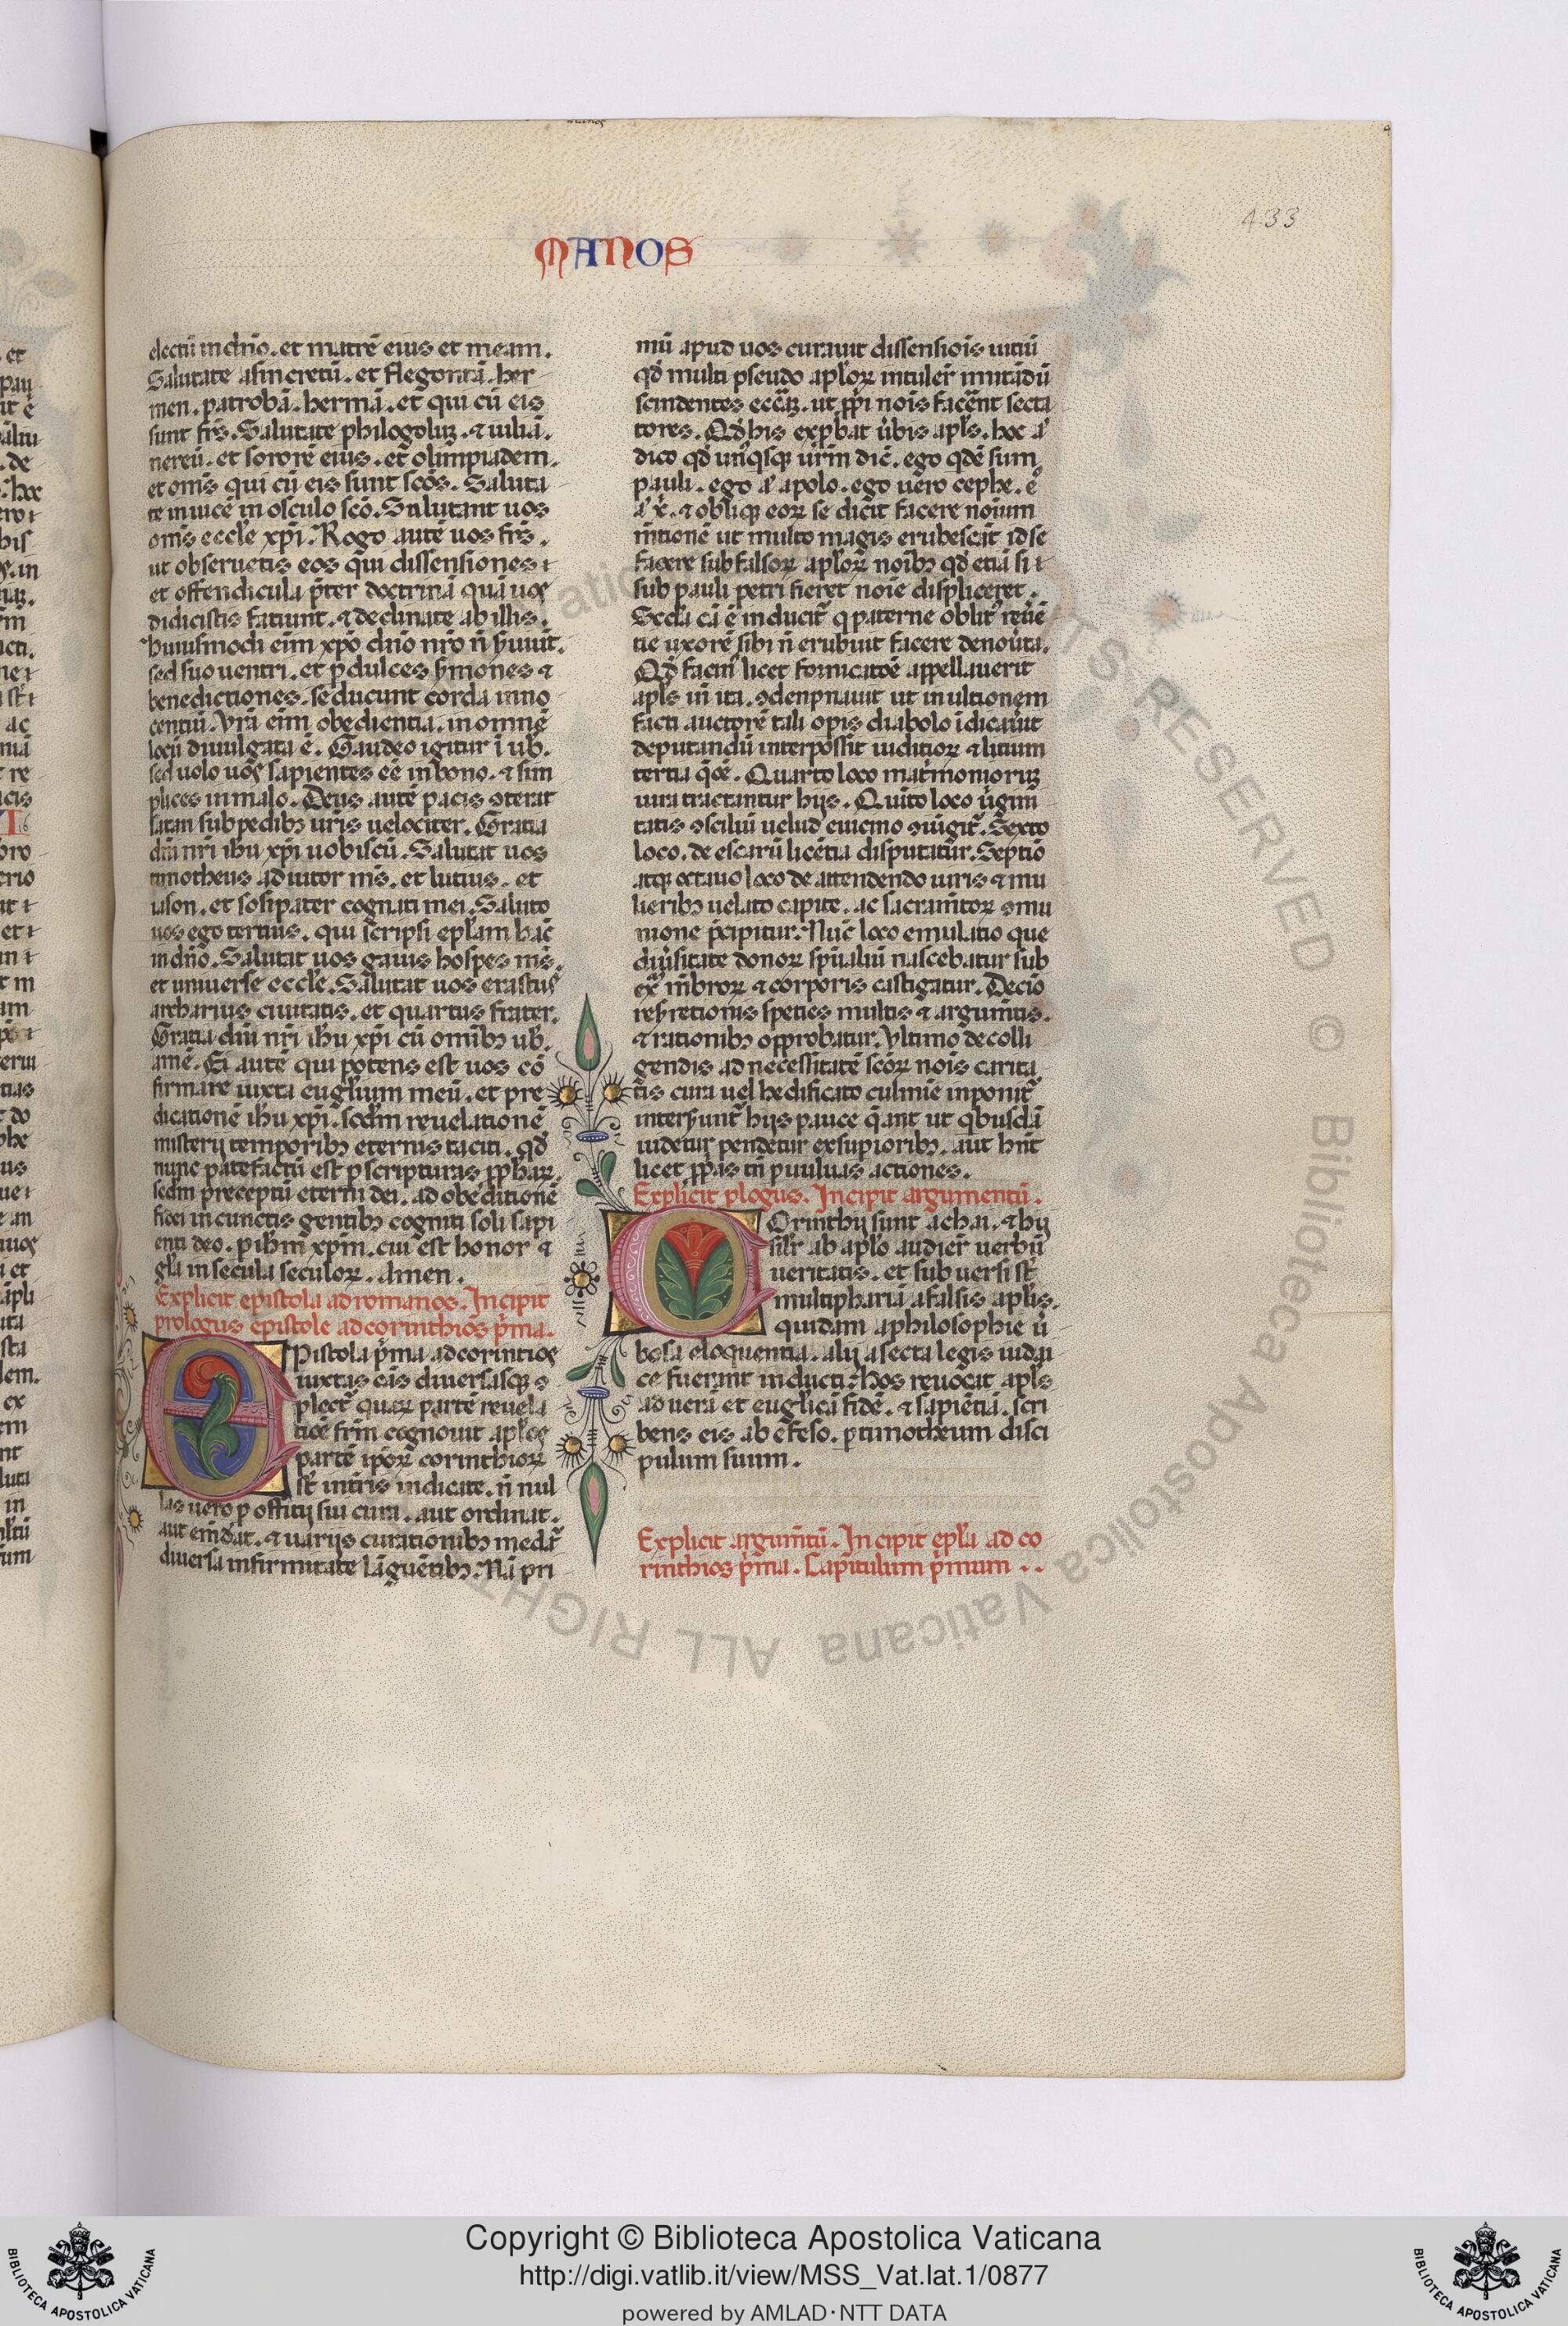 433
MANOS
electū in dnō. et matrē eius et meam.
Salutate asincretū. et flegontā. her
men. patrobā. hermā. et qui cū eis
sunt frēs. Salutate philogolūȝ. ⁊ iuliā.
nereū. et sororē eius. et olimpiadem.
et omīs qui cū eis sunt scōs. Saluta
te inuicē in osculo scō. Salutant uos
omīs eccl'e xp̄i. Rogo autē uos frēs.
ut obseruetis eos qui dissensiones ⁊
et offendicula p̄ter doctrinā quā uos
didicistis fatiunt. ⁊ declinate ab illis.
huiusmodi eīm xp̄o dnō nrō n̄ s̄uiūt.
sed suo uentri. et p dulces s̄mones ⁊
benedictiones. seducunt corda inno
centiū. Vrā eīm obedientia. in omnē
locū diuulgata ē. Gaudeo igitur ī ub̄.
sed uolo uos sapientes eē in bono. ⁊ sim
plices in malo. Deus autē pacis ꝯterat
satan sub pedibȝ uris uelociter. Gratia
dn̄i nri ihu xp̄i uobiscū. Salutat uos
timotheus adiutor ms̄. et lutius. et
iason. et sosipater cognati mei. Saluto
uos ego tertius. qui scripsi epl'am hāc
in dnō. Salutat uos gaius hospes ms̄.
et uniuerse eccl'e. Salutat uos erastus
archarius ciuitatis. et quartus frater.
Gratia dn̄i nr̄i ihu xp̄i cū omībȝ ub̄.
amē. Ei autē qui potens est uos cō
firmare iuxta eugl'ium meū. et pre
dicationē ihu xp̄i. scd̄m reuelationē
misterij temporibȝ eternis taciti. qd̄
nunc patefactū est p scripturas pp̄haꝝ.
scd̄m preceptū eterni dei. ad obeditionē
fidei in cunctis gentibȝ cogniti soli sapi
enti deo. p ihm̄ xp̄m. cui est honor ⁊
gl'a in secula seculoꝝ. Amen.
Explicit epistola ad romanos. Incipit
prologus epistole ad corinthios p̄ma.
EPistola p̄ma ad corintios
iuxtas cās diuersasqꝫ ꝯ
plect̄ quaꝝ partē reuela
tiōē frm̄ cognouit apl's
partē ip̄oꝝ corinthioꝝ
st̄ intr̄is indicate. n̄ nul
las uero p offitij sui cura. aut ordinat.
aut em̄dat. ⁊ uarijs curationibȝ medet̄
diuersa infirmitate lāguētibȝ. Nā pri
mū apud uos curauit dissensiōis uitiū
qd̄ multi pseudo apl'oꝝ intuler̄ mutādū
scindentes ecc'aȝ. ut pp̄i noīs facēnt secta
tores. Qd̄ his exp̄bat ūbis apl's. hoc aᷓ
dico qd̄ un̄qsqꝫ ur̄m dic̄. ego qdē sum
pauli. ego aᷓ apolo. ego uero cephe. ē
aᷓ x̄. ⁊ obliqꝫ eoꝝ se dicit facere noīum
m̄tionē ut multo magis erubescāt id se
facere sub falsoꝝ apl'oꝝ noībȝ qd̄ etiā si ⁊
sub pauli petri fieret noīe displiceret.
Scd̄a cā ē inducit̄ q paterne oblit' reuē
tie uxorē sibi n̄ erubuit facere de nouita.
Qd̄ facin' licet fornicatōē appellauerit
apl's in̄ ita. ꝯdenpnauit ut in ultionem
facti auctorē tali opis diabolo īdicauit
deputandū interpossit iuditioꝝ ⁊ litium
tertia q̄ōē. Quarto loco mat'monioruȝ
iura tractantur hijs. Quito loco ūgini
tatis ꝯsciliū uelud eiusmo ꝯiūgit̄. Sexto
loco. de escarū licētia disputatur. Septīo
atqꝫ octauo loco de attendendo uiris ⁊ mu
lieribȝ uelato capite. ac sacram̄toꝝ ꝯmu
nione p̄cipitur. Nūc loco emulatio que
diūsitate donoꝝ sp̄ualiū nascebatur sub
exᷓ m̄broꝝ ⁊ corporis castigatur. Decīo
res̄retionis speties multis ⁊ argum̄tis.
⁊ rationibȝ opprobatur. Vltimo de colli
gendis ad necessitatē scōꝝ noīs carita
tis cura uel hedificato culmīe inponit̄
inters̄unt̄ hijs pauce q̄ant ut qbusdā
uidetur pendetur exsupioribȝ. aut hn̄t
licet pp̄as tn̄ p uuluas actiones.
Explicit plogus. Incipit argumentū.
COrinthij sunt achai. ⁊ hij
sil'r ab apl'o audier̄ uerbū
ueritatis. et subuersi st̄
multiphariā a falsis apl'is.
quidam a philosophie ū
bosa eloquentia. alij a secta legis iudai
ce fuerint inducti: hos reuocat apl's
ad uerā et eugl'icā fidē. ⁊ sapiētiā. scri
bens eis ab efeso. p timotheum disci
pulum suum.
Explicit argum̄tū. Incipit epl'a ad co
rinthios p̄ma. Capitulum p̄mum . .
Copyright © Biblioteca Apostolica Vaticana
http://digi.vatlib.it/view/MSS_Vat.lat.1/0877
powered by AMLAD·NTT DATA
BIBLIOTECA APOSTOLICA VATICANA
BIBLIOTECA APOSTOLICA VATICANA
ALL RIGHTS RESERVED © Biblioteca Apostolica Vaticana